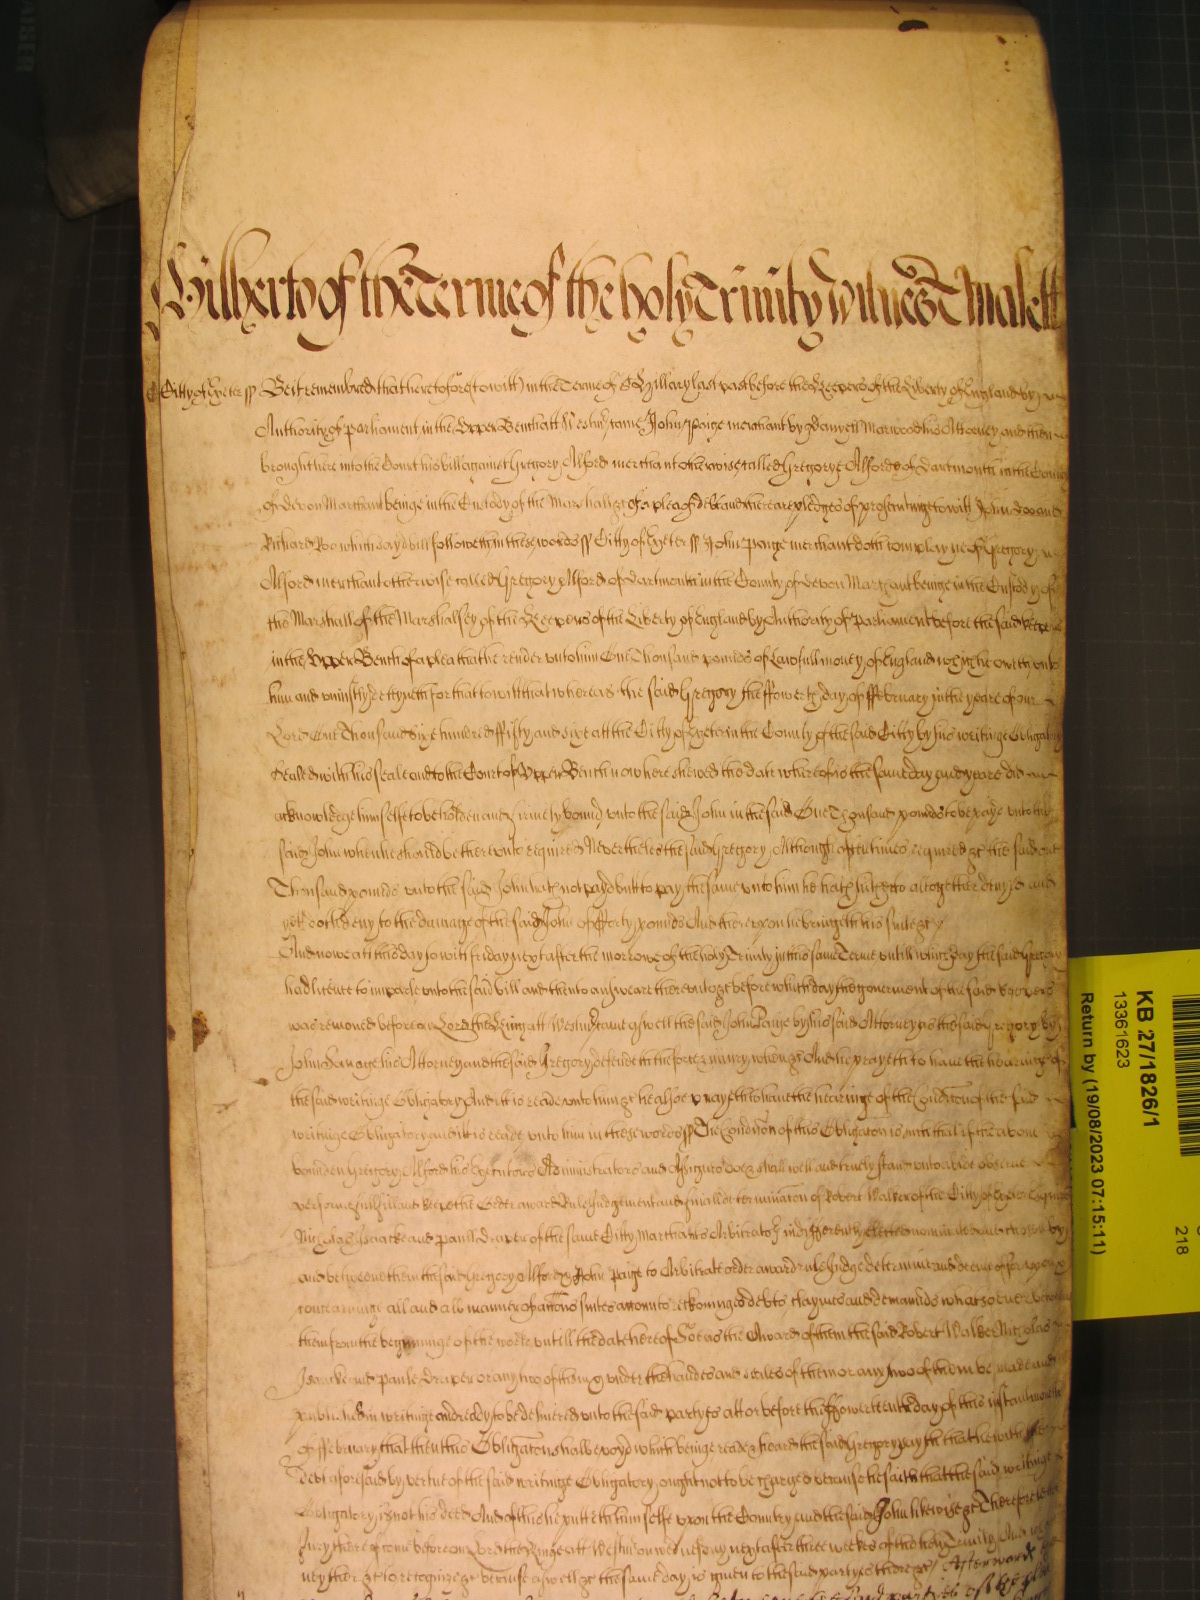 yet of the Terme of the holy Trinity Witnes T Malett
Citty of Exeter ss Be it remembred that heretofore (to witt) in the Terme of St Hillary last past before the Keepers of the Liberty of England by
Authority of parliament in the Upper Bench att Westmr came John Paige merchant by Danyell Marwood his Attorney and then
brought here into the Court his bill against Gregory Alford merchant otherwise called Gregorye Alford of Dartmouth in the County
of Devon Marchant beinge in the Custody of the Marshall &c of a plea of debt and there are pledges of prosecutinge to witt John Doe and
Richard Roe which sayd bill followeth in these words ss Citty of Exeter ss John Paige merchant doth complayne of Gregory
Alford merchant otherwise called Gregory Alford of Dartmouth in the County of Devon Marchant beinge in the Custody of
the Marshall of the Marshalsey of the Keepers of the Liberty of England by Authority of Parliament before the said Keepers
in the Upper Bench of a plea that he render unto him One Thousand pounds of lawfull money of England which he oweth unto
him and uniustly detayneth for that to witt that whereas the said Gregory the ffowerth day of ffebruary in the yeare of our
Lord One Thousand sixe hundred ffifty and sixe att the Citty of Exeter in the County of the said Citty by his writinge Obligatory
sealed with his seale and to the Court of Upper Bench now here shewed the date whereof is the same day and yeare did
acknowledge himselfe to be holden and firmely bound unto the said John in the said One Thousand pounds to be payd unto the
said John when he should be thereunto required Neverthelesse the said Gregory Although oftentimes required &c the said One
Thousand pounds unto the said John hath not payd but to pay the same unto him he hath hitherto altogether denyed and
yet doth deny to the damage of the said John of fforty pounds And thereupon he bringeth his suite &c
And nowe att this day to witt friday next after the morrowe of the holy Trinity in this same Terme untill which day the said Gregory
had licence to imparle unto the said bill and then to answeare thereunto &c before which day the government of the said Keepers
was removed before our Lord the King att Westmr came aswell the said John Paige by his said Attorney as the said Gregory by
John Savage his Attorney and the said Gregory defendeth the force & iniury when &c And he prayeth to have the hearinge of
the said writinge Obligatory And it is reade unto him &c he alsoe prayeth to have the hearinge of the Condicion of the said
writinge Obligatory and it is reade unto him in these words ss The Condicion of this Obligacion is such that if the above
bounden Gregory Alford his Executors Administrators and Assignes doe & shall well and truely stand unto abide observe
performe fulfill and keepe the Order award Rule Judgement and finall determinacion of Robert Walker of the Citty of Exeter Esquire
Nicholas Isaacke and Paul Draper of the same Citty Marchants Arbitrators indifferently elected nominated and chosen by
and betweene them the said Gregory Alford & John Paige to Arbitrate order award rule Judge determine and decree of for upon &
concearninge all and all manner of accions suites accompts reckonings debts claymes and demaunds whatsoever betweene
them from the beginninge of the world untill the date hereof Soe as the Award of them the said Robert Walker Nicholas
Isaacke and Paule Draper or any two of them under the handes and seales of them or any two of them be made and
published in writinge and ready to be delivered unto the said partyes att or before the ffowerteenth day of this instant moneth
of ffebruary that then this Obligacion shalbe voyd which beinge reade & heard the said Gregory sayth that he with the
debt aforesaid by vertue of the said writinge Obligatory ought not to be charged because he saith that the said writinge
Obligatory is not his deed And of this he putteth himselfe upon the Country and the said John likewise &c Therefore let a
Jury thereof come before our Lord the Kinge att Westmr on Wednesday next after three weekes of the holy Trinity And who
neyther &c to recognize &c because aswell &c the same day is given to the said partyes there &c Afterwards
KB 27/1826/1
13361623
Return by (19/08/2023 07:15:11)
218